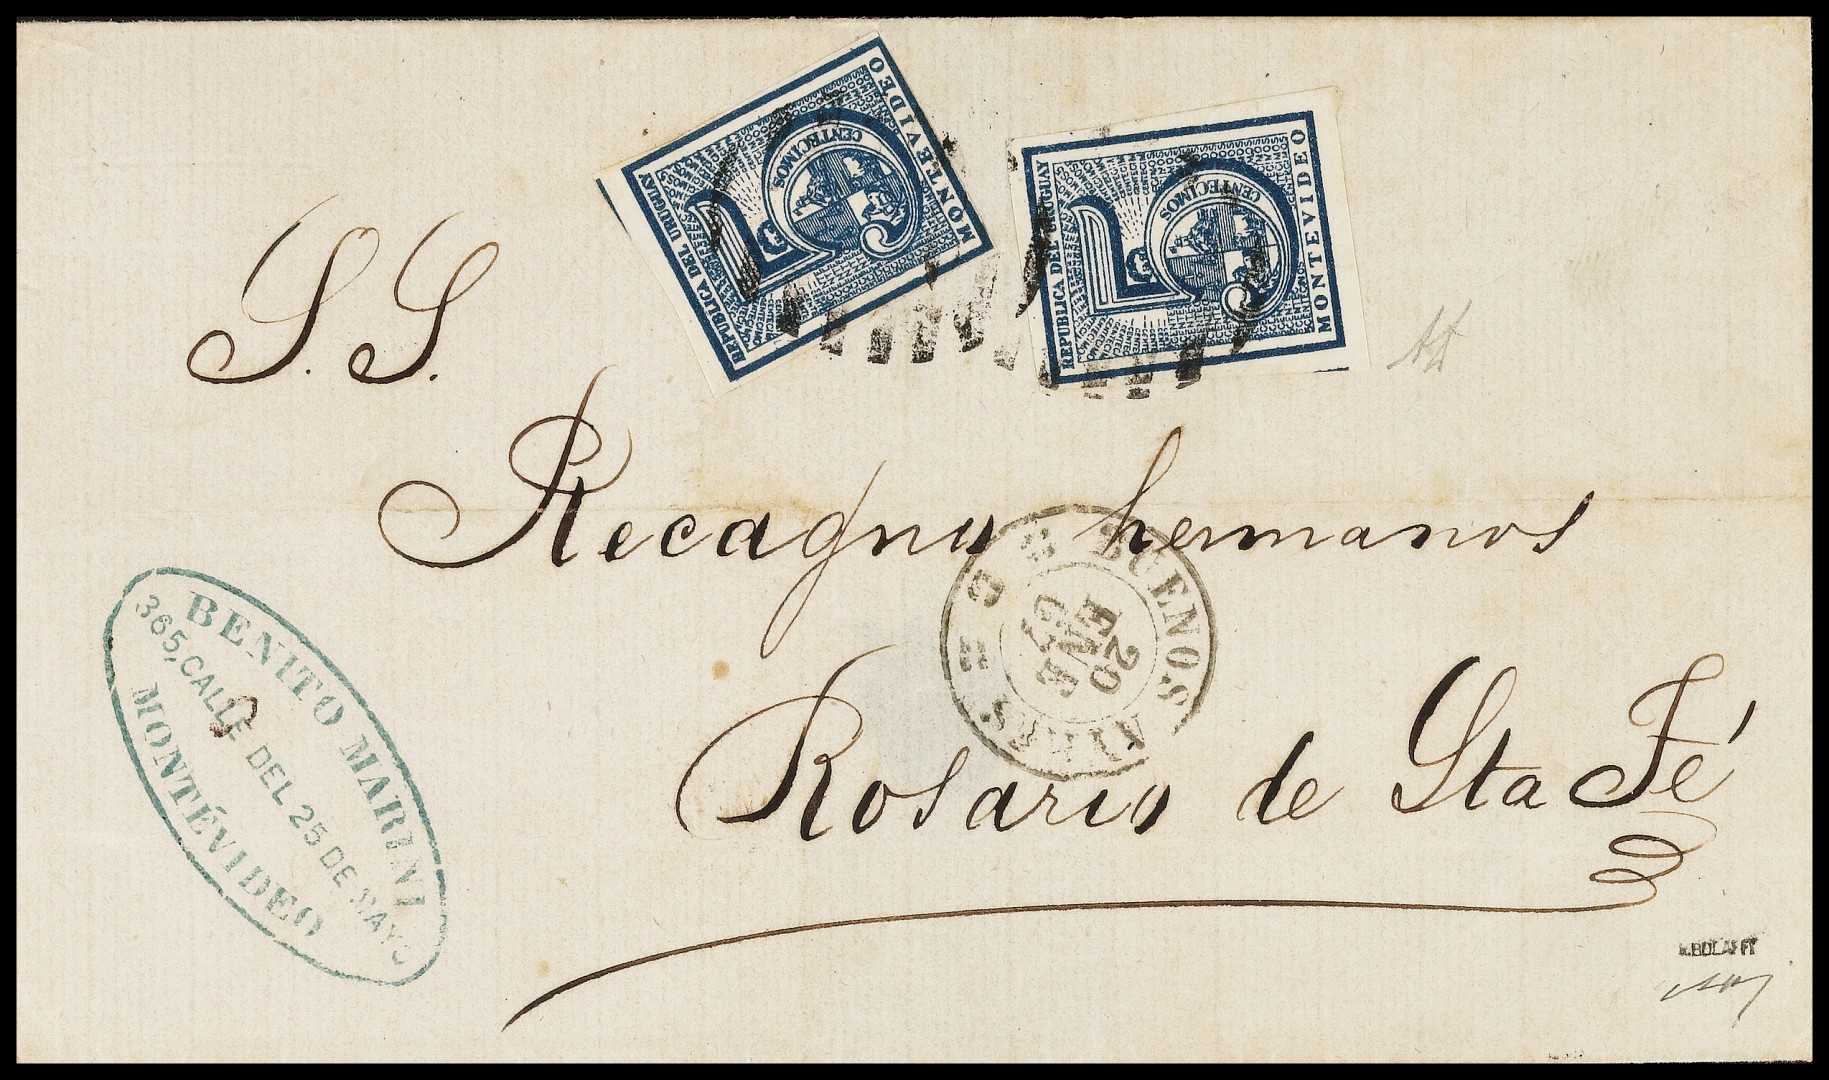 REPUBLICA DEL URUGUAY
CENTECIMOS
MONTEVIDEO
REPUBLICA DEL URUGUAY
CENTECIMOS
MONTEVIDEO
S. S.
Recagno hermanos
Rosario de Sta Fé
BUENOS AIRES
20
ENE
67
BENITO MARINI
365, CALLE DEL 25 DE MAYO
MONTÉVIDEO
A.BOLAFFI